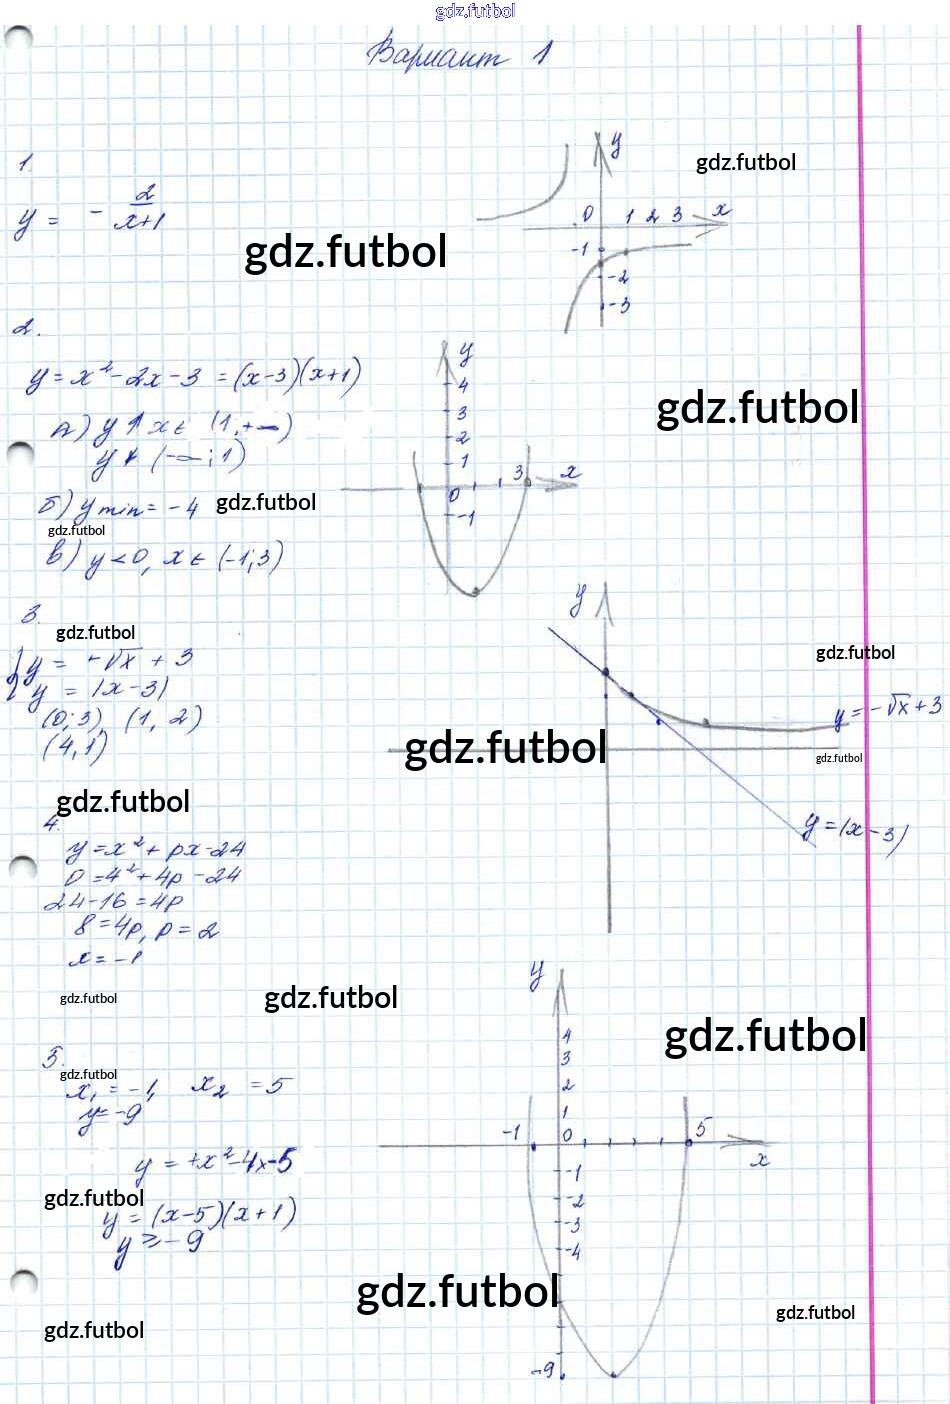 gdz.futbol
Вариант 1
1.
y = - 2/(x+1)
gdz.futbol
gdz.futbol
y
0 1 2 3 x
-1
-2
-3
2.
y = x² - 2x - 3 = (x-3)(x+1)
а) y ↑ x ∈ (1, +∞)
y ↓ (-∞; 1)
б) y min = -4
gdz.futbol
gdz.futbol
в) y < 0, x ∈ (-1; 3)
gdz.futbol
y
4
3
2
1
0
3 x
-1
3.
gdz.futbol
{ y = -√x + 3
y = |x - 3|
(0; 3), (1, 2)
(4, 1)
gdz.futbol
y
gdz.futbol
y = -√x + 3
gdz.futbol
y = |x - 3|
gdz.futbol
4.
y = x² + px - 24
0 = 4² + 4p - 24
24 - 16 = 4p
8 = 4p, p = 2
x = -1
gdz.futbol
gdz.futbol
gdz.futbol
5.
gdz.futbol
x₁ = -1, x₂ = 5
y = -9
y = +x² - 4x - 5
gdz.futbol
y = (x-5)(x+1)
y ≥ -9
gdz.futbol
gdz.futbol
gdz.futbol
y
4
3
2
1
-1 0 5
x
-1
-2
-3
-4
-9